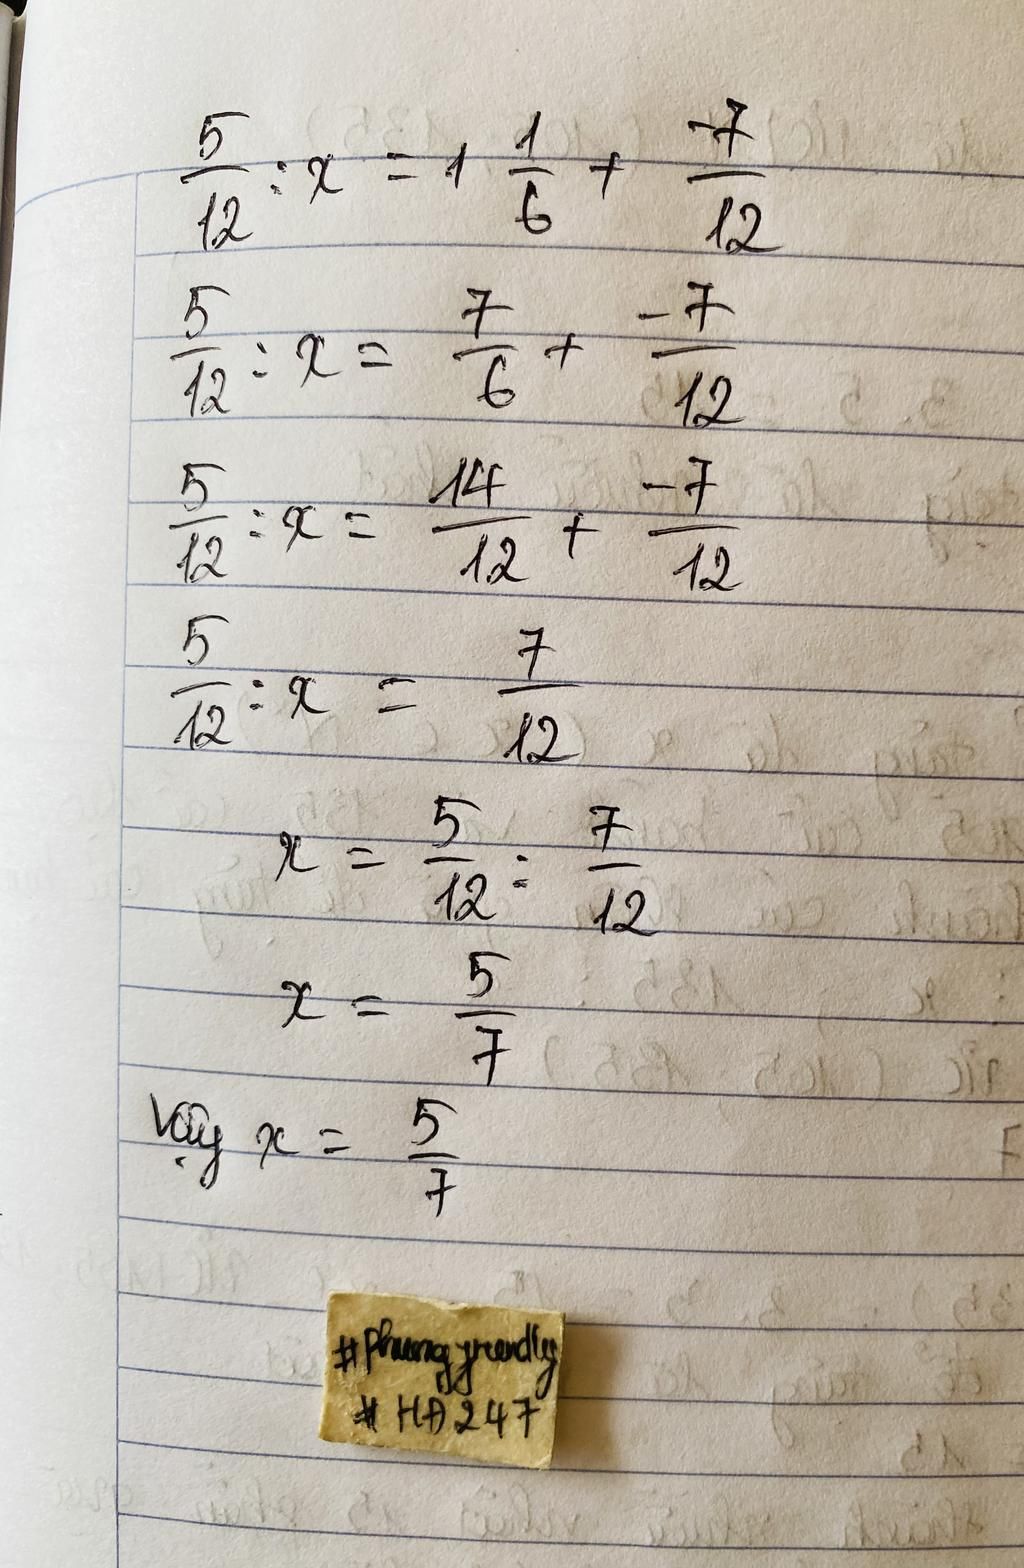 5/12 : x = 1 1/6 + -7/12
5/12 : x = 7/6 + -7/12
5/12 : x = 14/12 + -7/12
5/12 : x = 7/12
x = 5/12 : 7/12
x = 5/7
Vậy x = 5/7
#
# HA247